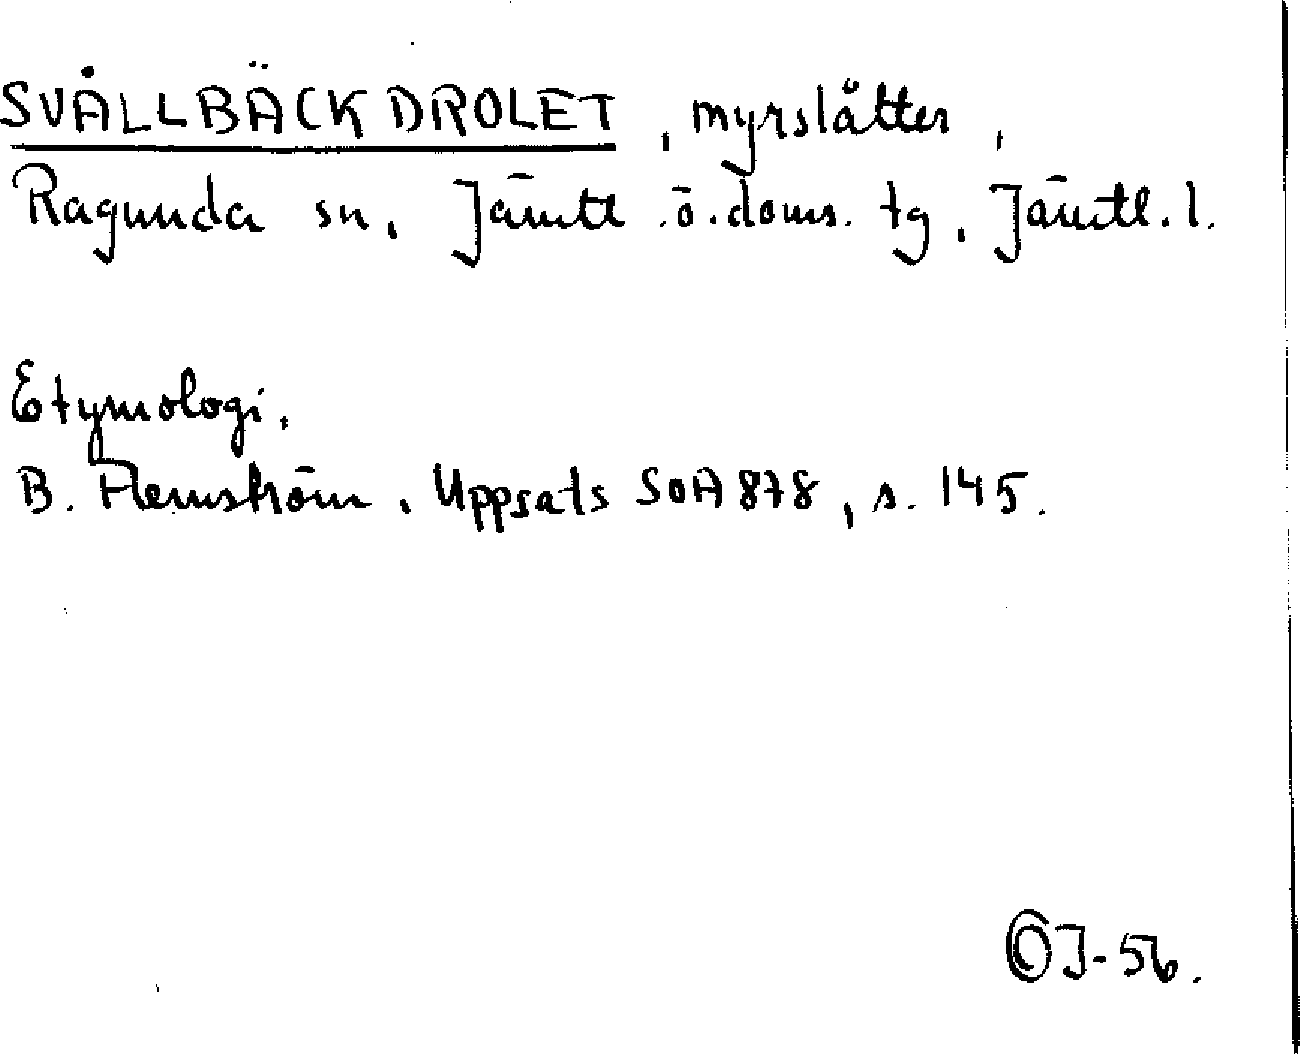 SVÅLLBÄCKDROLET, myrslåtter,
Ragunda sn, Jämtl. ö. doms. tg, Jämtl. l.
Etymologi.
B. Flemström, Uppsats SOA 878, s. 145.
OJ-56.